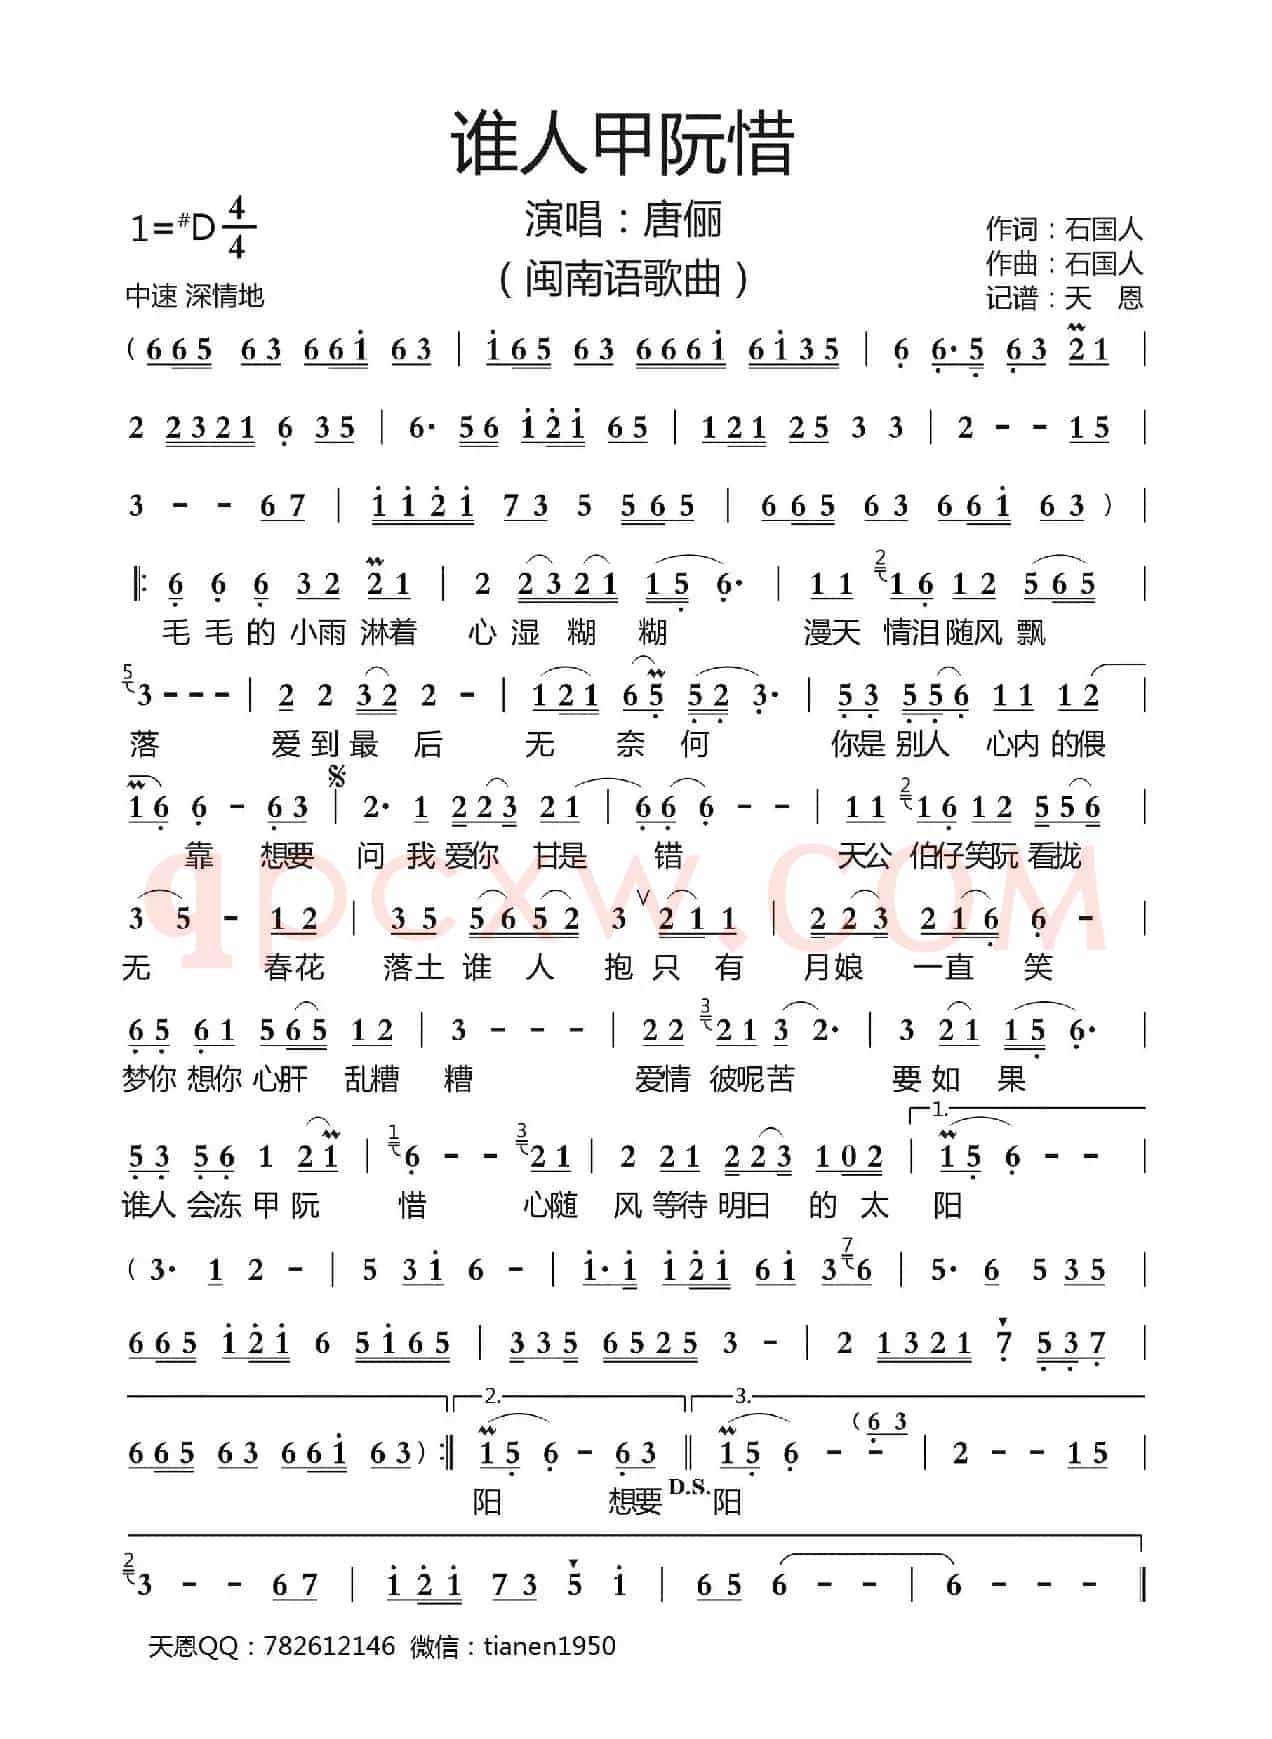 谁人甲阮惜
1=#D 4/4
演唱：唐俪
作词：石国人
（闽南语歌曲）
作曲：石国人
中速 深情地
记谱：天 恩
( 6 6 5 6 3 6 6 1 6 3 | 1 6 5 6 3 6 6 6 1 6 1 3 5 | 6 6· 5 6 3 2 1 |
2 2 3 2 1 6 3 5 | 6· 5 6 1 2 1 6 5 | 1 2 1 2 5 3 3 | 2 - - 1 5 |
3 - - 6 7 | 1 1 2 1 7 3 5 5 6 5 | 6 6 5 6 3 6 6 1 6 3 ) |
‖: 6 6 6 3 2 2 1 | 2 2 3 2 1 1 5 6· | 1 1 2 1 6 1 2 5 6 5 |
毛毛的小雨淋着 心湿糊糊 漫天 情泪随风飘
5 3 - - - | 2 2 3 2 2 - | 1 2 1 6 5 5 2 3· | 5 3 5 5 6 1 1 1 2 |
落 爱到最后 无奈何 你是别人 心内的偎
1 6 6 - 6 3 | 2· 1 2 2 3 2 1 | 6 6 6 - - | 1 1 2 1 6 1 2 5 5 6 |
靠 想要 问我爱你 甘是 错 天公 伯仔笑阮看拢
3 5 - 1 2 | 3 5 5 6 5 2 3 ∨ 2 1 1 | 2 2 3 2 1 6 6 - |
无 春花 落土谁人 抱只有 月娘 一直 笑
6 5 6 1 5 6 5 1 2 | 3 - - - | 2 2 3 2 1 3 2· | 3 2 1 1 5 6· |
梦你想你心肝 乱糟 糟 爱情 彼呢苦 要如果
1.
5 3 5 6 1 2 1 | 1 6 - - 3 2 1 | 2 2 1 2 2 3 1 0 2 | 1 5 6 - - |
谁人会冻甲阮 惜 心随 风等待明日 的太 阳
( 3· 1 2 - | 5 3 1 6 - | 1· 1 1 2 1 6 1 3 7 6 | 5· 6 5 3 5 |
6 6 5 1 2 1 6 5 1 6 5 | 3 3 5 6 5 2 5 3 - | 2 1 3 2 1 7 5 3 7 |
2. 3.
6 6 5 6 3 6 6 1 6 3 ) :‖ 1 5 6 - 6 3 ‖ 1 5 6 - - ( 6 3 | 2 - - 1 5 |
D.S.
阳 想要 阳
2 3 - - 6 7 | 1 2 1 7 3 5 1 | 6 5 6 - - | 6 - - - ‖
天恩QQ：782612146 微信：tianen1950
qpcxw.COM